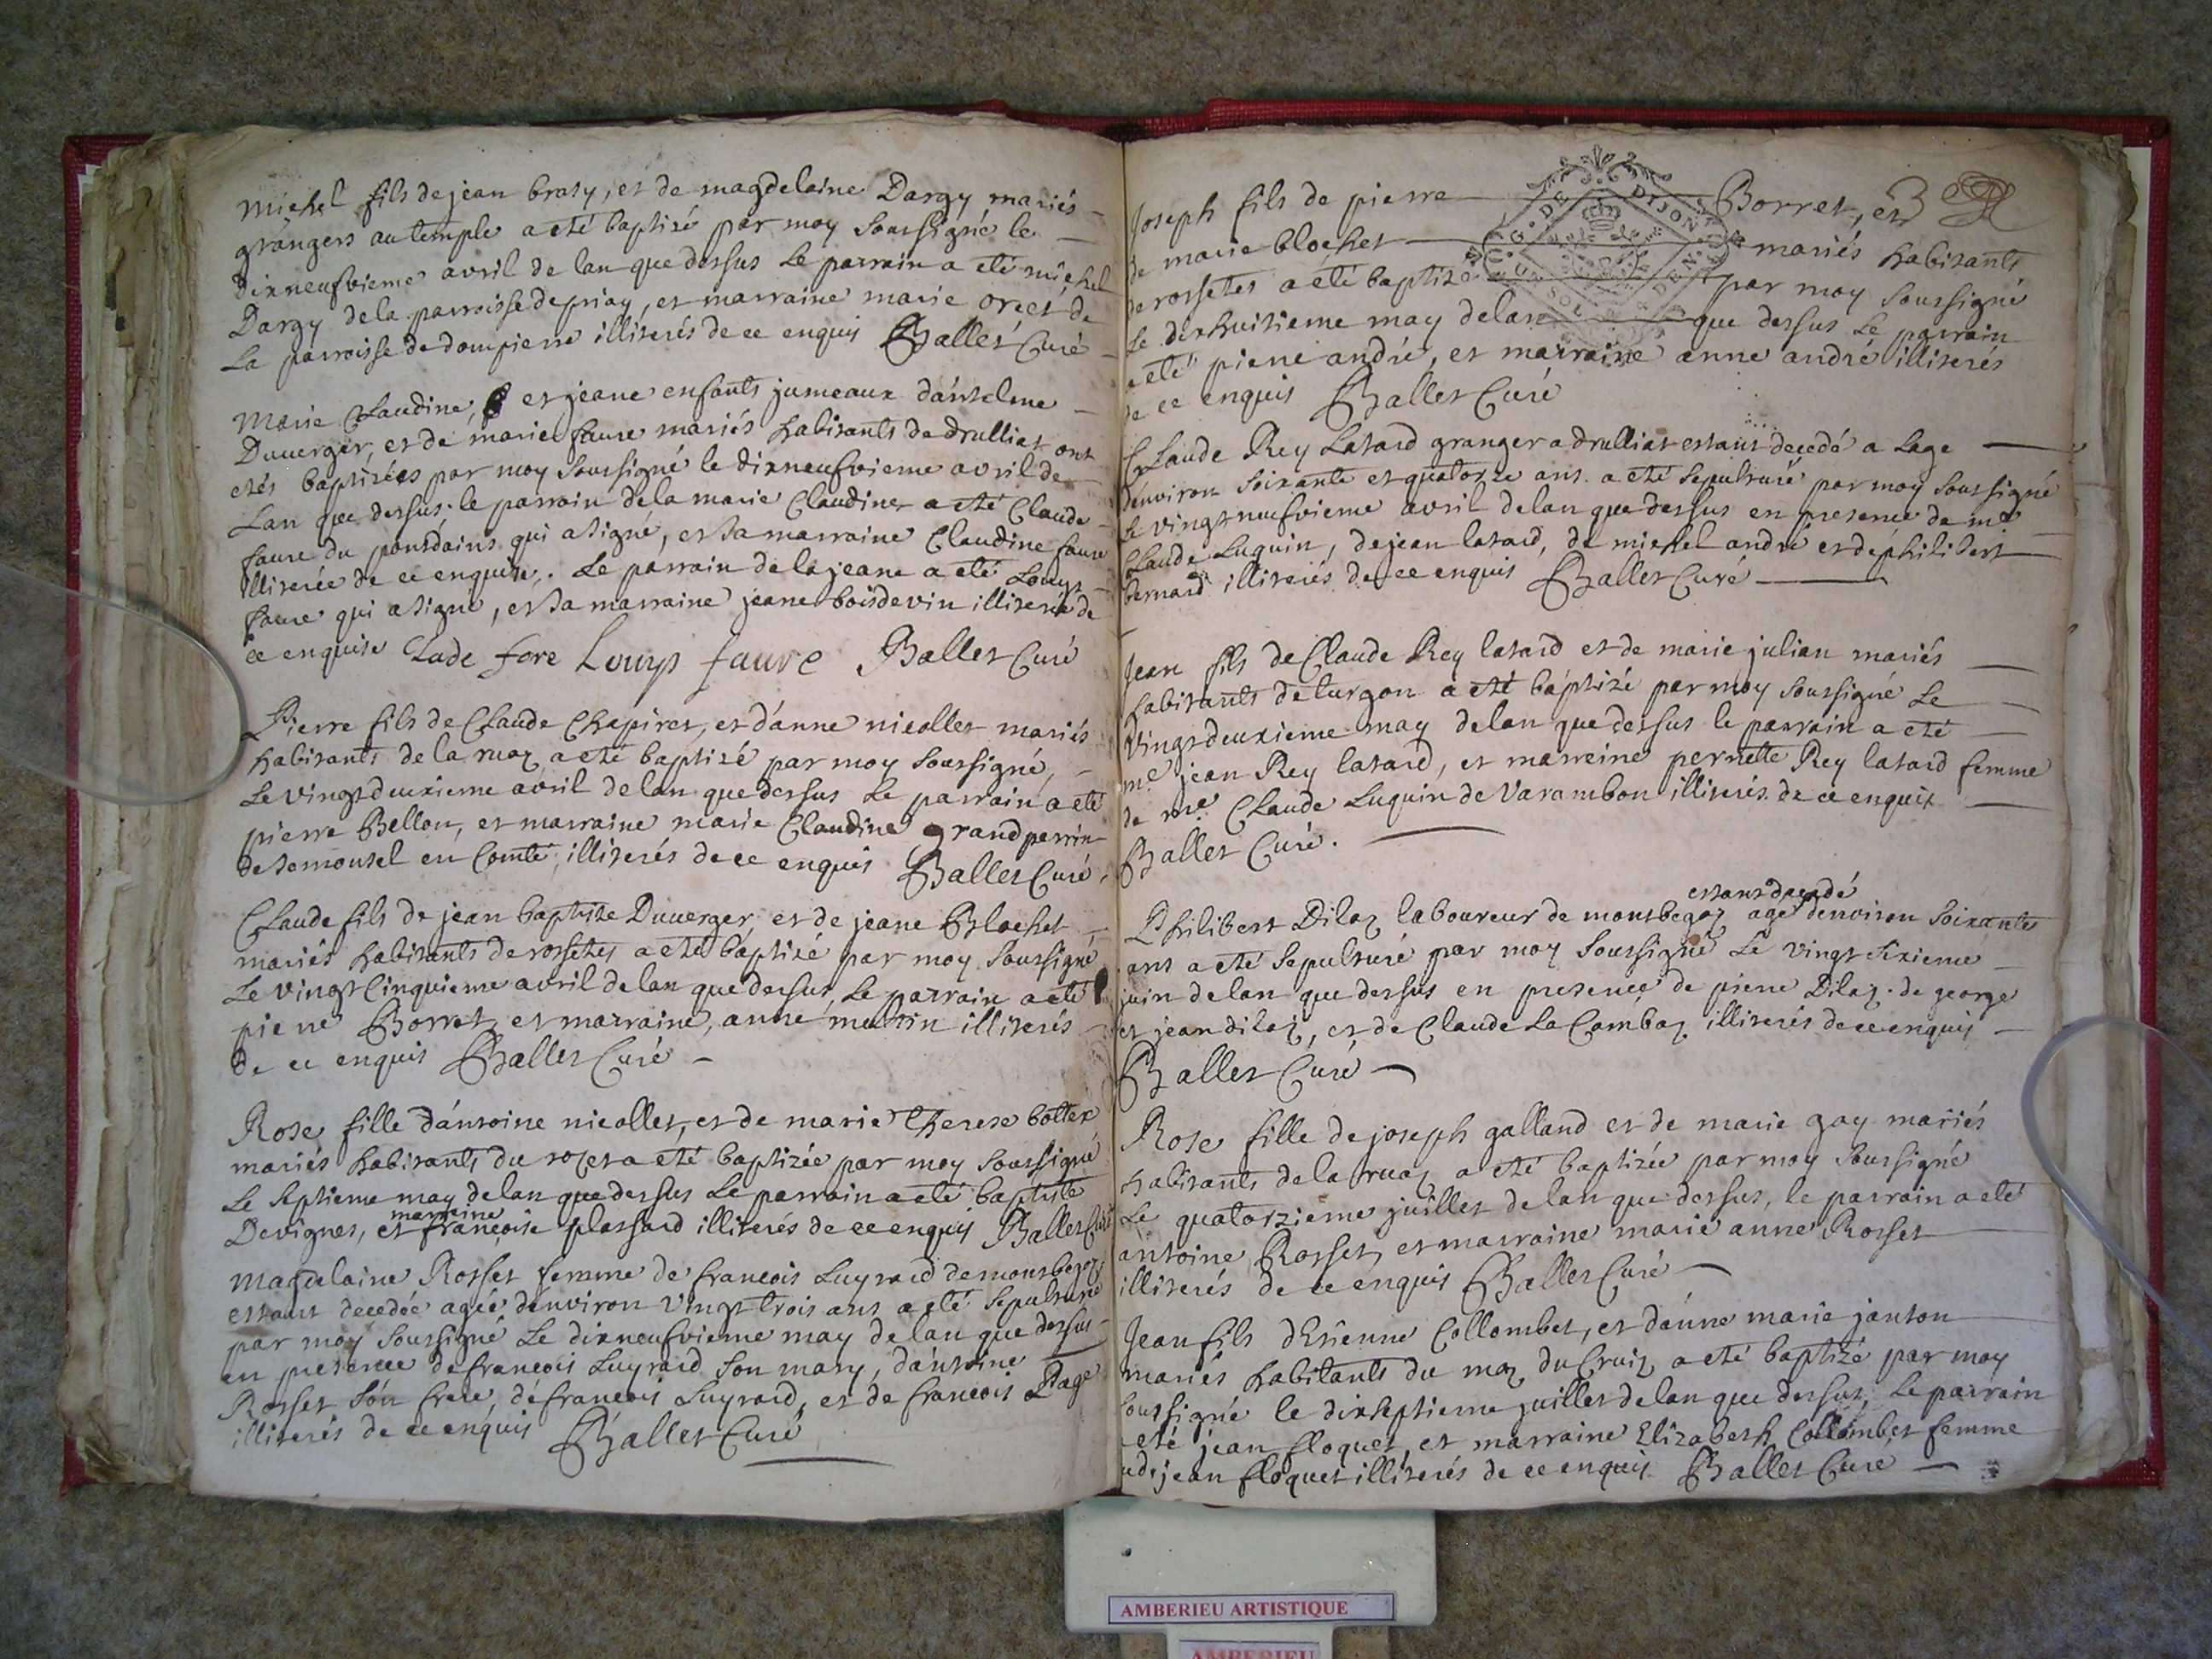 Michel fils de jean braty, et de magdelaine Dargy mariés
grangers au temple a eté baptisé par moy soussigné le
dixneufvieme avril de lan que dessus Le parrain a eté michel
Dargy de la parroisse de priay, et marraine marie orcet de
La parroisse de dompierre illiterés de ce enquis Ballet Curé
Marie Claudine, et jeane enfants jumeaux d'antelme
Duverger, et de marie faure mariés habitants de drulliat ont
etés baptizées par moy soussigné le dixneufvieme avril de
Lan que dessus. le parrain de la marie Claudine a eté Claude
faure du pontdains qui a signé, et sa marraine Claudine faure
illiterée de ce enquise. Le parrain de la jeane a eté Louys
faure qui a signé, et sa marraine jeane boisdevin illiterée de
ce enquise Lade fore Louys faure Ballet Curé
Pierre fils de Claude Chapiret, et d'anne nicollet mariés
habitants de la ruaz a eté baptizé par moy soussigné,
Le vingtdeuxieme avril de lan que dessus Le parrain a eté
pierre Bellon, et marraine marie Claudine grandperrin
de Semoutel en Comté, illiterés de ce enquis Ballet Curé
Claude fils de jean baptiste Duverger et de jeane Blochet
mariés habitants de rossetes a eté baptizé par moy soussigné
Le vingtcinquieme avril de lan que dessus, Le parrain a eté
pierre Borret, et marraine, anne illiterés
de ce enquis Ballet Curé
Rose fille d'antoine nicollet, et de marie Therese bottex
mariés habitants du a eté baptizée par moy soussigné
Le septieme may de lan que dessus Le parrain a eté baptiste
marraine
Devignes, et françoise plassard illiterés de ce enquis Ballet Curé
Magdelaine Rosset femme de francois Luyrard de montbegoz
estant decedée agée denviron vingt trois ans a eté sepulturée
par moy soussigné Le dixneufvieme may de lan que dessus
en presence de francois Luyrard son mary, d'antoine
Rosset son frere, de francois Luyrard, et de francois Page
illiterés de ce enquis Ballet Curé
Joseph fils de pierre Borret, et
de marie blochet mariés habitants
de rossetes a eté baptizé par moy soussigné
Le dixhuitieme may de lan que dessus Le parrain
a eté pierre andré, et marraine anne andré illiterés
de ce enquis Ballet Curé
G. DE DIJON
Claude Rey Latard granger a drulliat estant decedé a Lage
denviron soixante et quatorze ans a eté sepulturé par moy soussigné
Le vingtneufvieme avril de lan que dessus en presence de me
Claude Luquin, de jean latard, de michel andré et de philibert
bernard illiterés de ce enquis Ballet Curé
Jean fils de Claude Rey latard et de marie julian mariés
habitants de turgon a eté baptizé par moy soussigné Le
vingtdeuxieme may de lan que dessus le parrain a eté
me jean Rey latard, et marreine pernette Rey latard femme
de me Claude Luquin de Varambon illiterés de ce enquis
Ballet Curé.
estant decedé
Philibert Dilaz laboureur de montbegoz agé denviron soixante
ans a eté sepulturé par moy soussigné Le vingt sixieme
juin de lan que dessus en presence de pierre Dilaz. de george
et jean dilaz, et de Claude La Combaz illiterés de ce enquis
Ballet Curé
Rose fille de joseph galland et de marie gay mariés
habitants de la ruaz a eté baptizée par moy soussigné
Le quatorzieme juillet de lan que dessus, le parrain a eté
antoine Rosset, et marraine marie anne Rosset
illiterés de ce enquis Ballet Curé
Jean fils d'Etienne Collombet, et d'anne marie janton
mariés habitants du maz du Cruiz a eté baptizé par moy
soussigné le dixseptieme juillet de lan que dessus, Le parrain
a eté jean floquet, et marraine Elizabeth Collombet femme
jean floquet illiterés de ce enquis Ballet Curé
AMBERIEU ARTISTIQUE
AMBERIEU